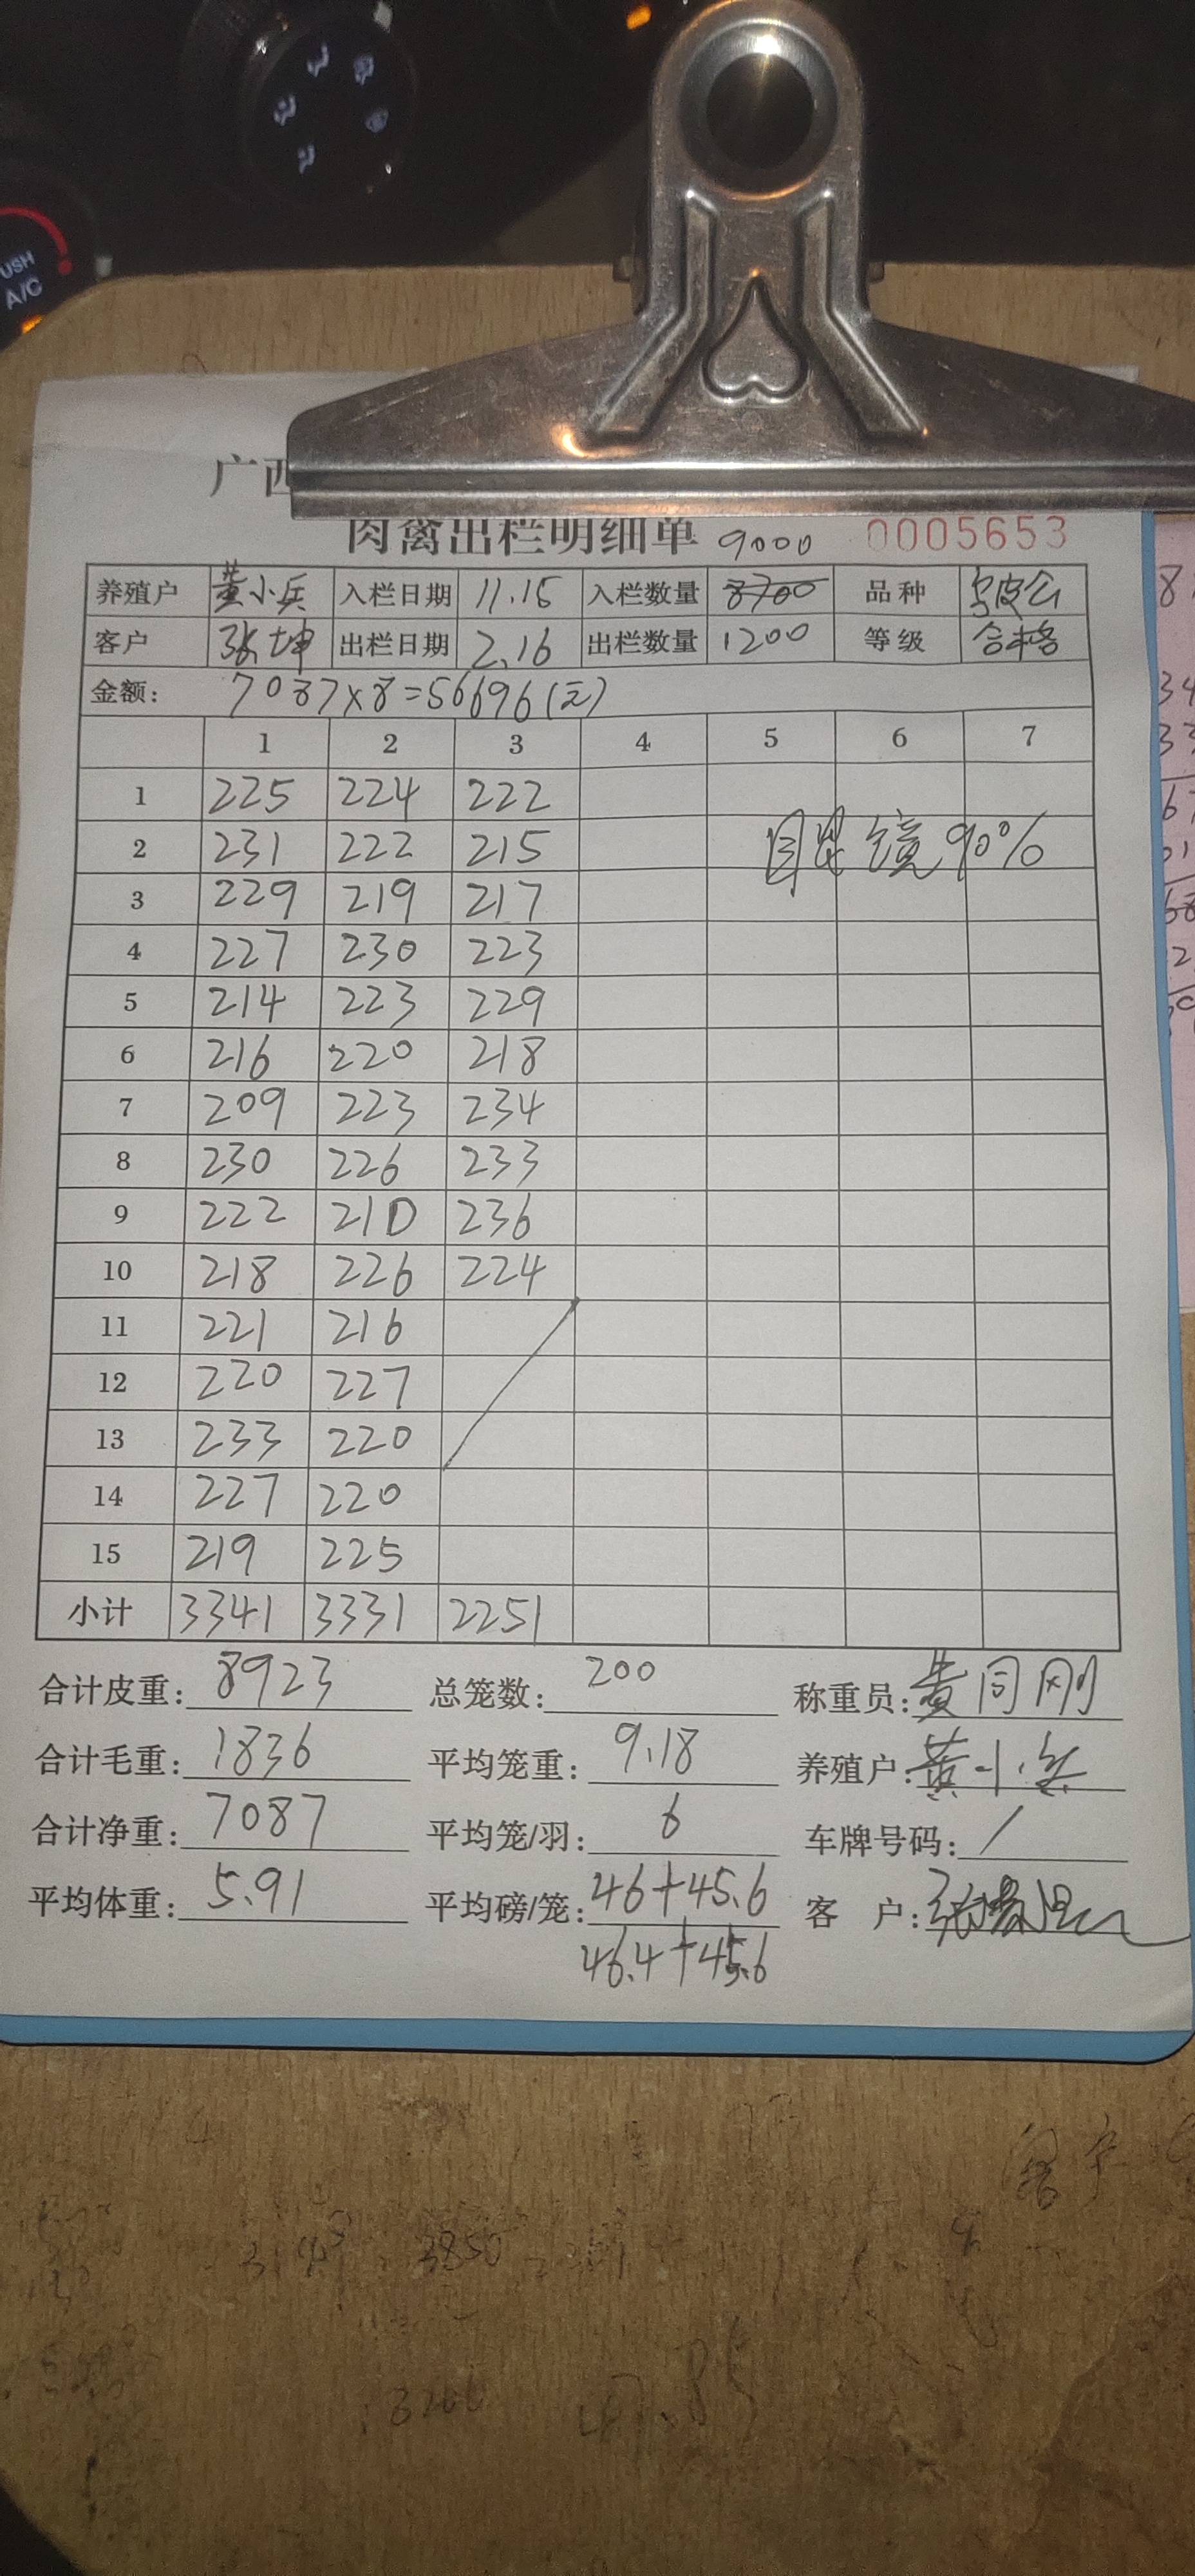 USH
A/C
广西
肉禽出栏明细单 9000 0005653
养殖户 黄小兵 入栏日期 11.15 入栏数量 8700 品种 乌皮公
客户 张坤 出栏日期 2.16 出栏数量 1200 等级 合格
金额: 7087×8=56696(元)
1 2 3 4 5 6 7
1 225 224 222
2 231 222 215 目呆镜90%
3 229 219 217
4 227 230 223
5 214 223 229
6 216 220 218
7 209 223 234
8 230 226 233
9 222 210 236
10 218 226 224
11 221 216
12 220 227
13 233 220
14 227 220
15 219 225
小计 3341 3331 2251
合计皮重: 8923 总笼数: 200 称重员: 黄同刚
合计毛重: 1836 平均笼重: 9.18 养殖户: 黄小兵
合计净重: 7087 平均笼/羽: 6 车牌号码: /
平均体重: 5.91 平均磅/笼: 46+45.6 客 户:
46.4+45.6